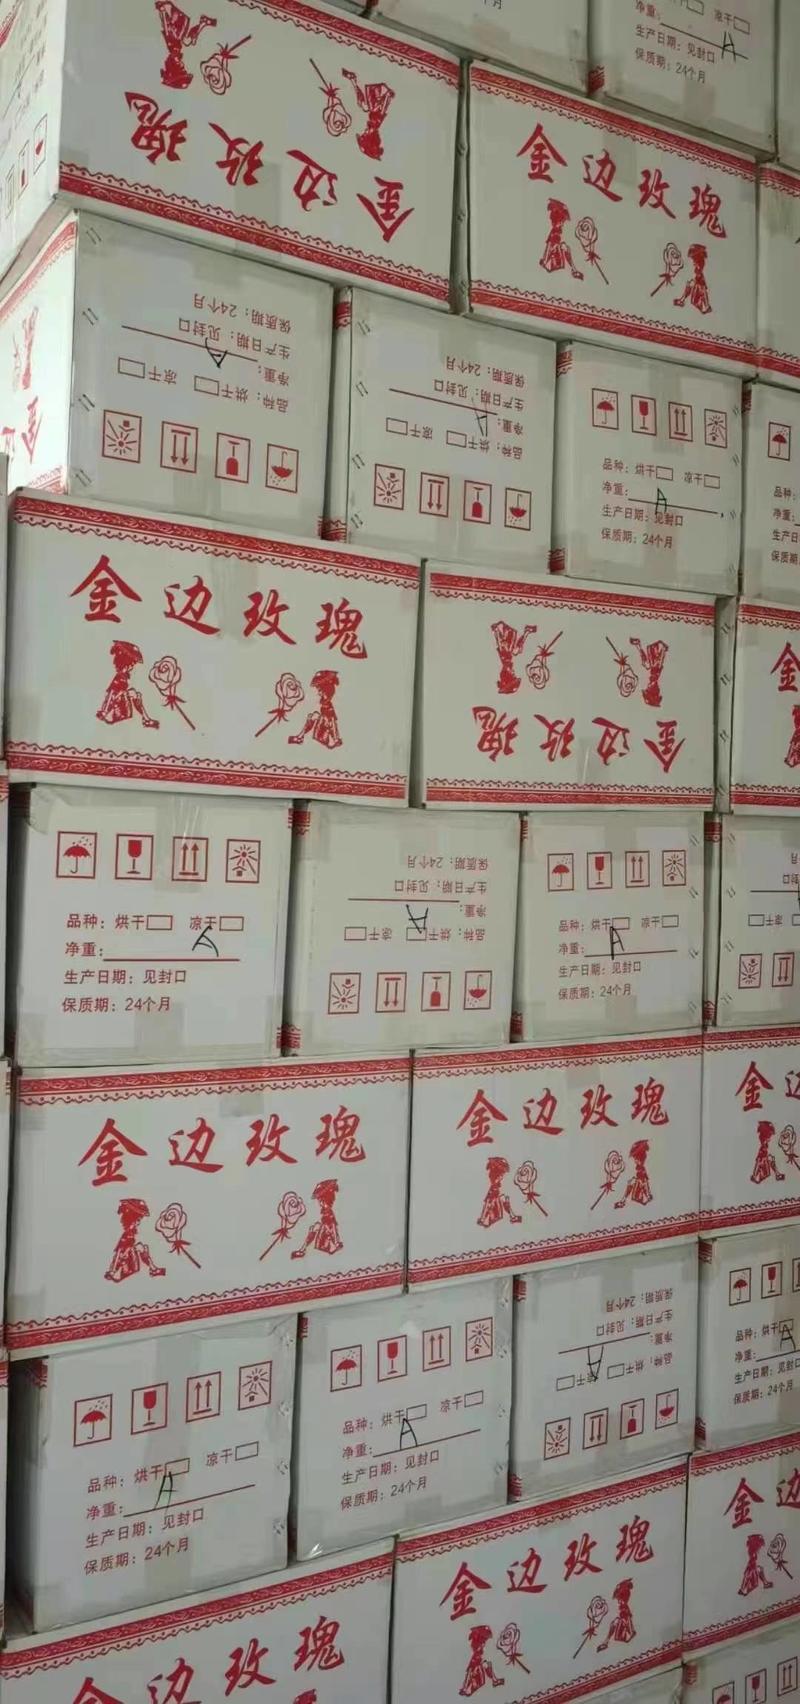 净重:
A
生产日期:见封口
保质期:24个月
金边玫瑰
金边玫瑰
品种:烘干 凉干
净重:
A
生产日期:见封口
保质期:24个月
品种:烘干 凉干
净重:
A
生产日期:见封口
保质期:24个月
品种:烘干 凉干
净重:
A
生产日期:见封口
保质期:24个月
金边玫瑰
金边玫瑰
品种:烘干 凉干
净重:
A
生产日期:见封口
保质期:24个月
品种:烘干 凉干
净重:
A
生产日期:见封口
保质期:24个月
品种:烘干 凉干
净重:
A
生产日期:见封口
保质期:24个月
金边玫瑰
金边玫瑰
金
品种:烘干 凉干
净重:
A
生产日期:见封口
保质期:24个月
品种:烘干 凉干
净重:
A
生产日期:见封口
保质期:24个月
品种:烘干 凉干
净重:
A
生产日期:见封口
保质期:24个月
品种:烘干
净重:
A
生产日期:见封口
保质期:24个月
金边玫瑰
金边玫瑰
金边